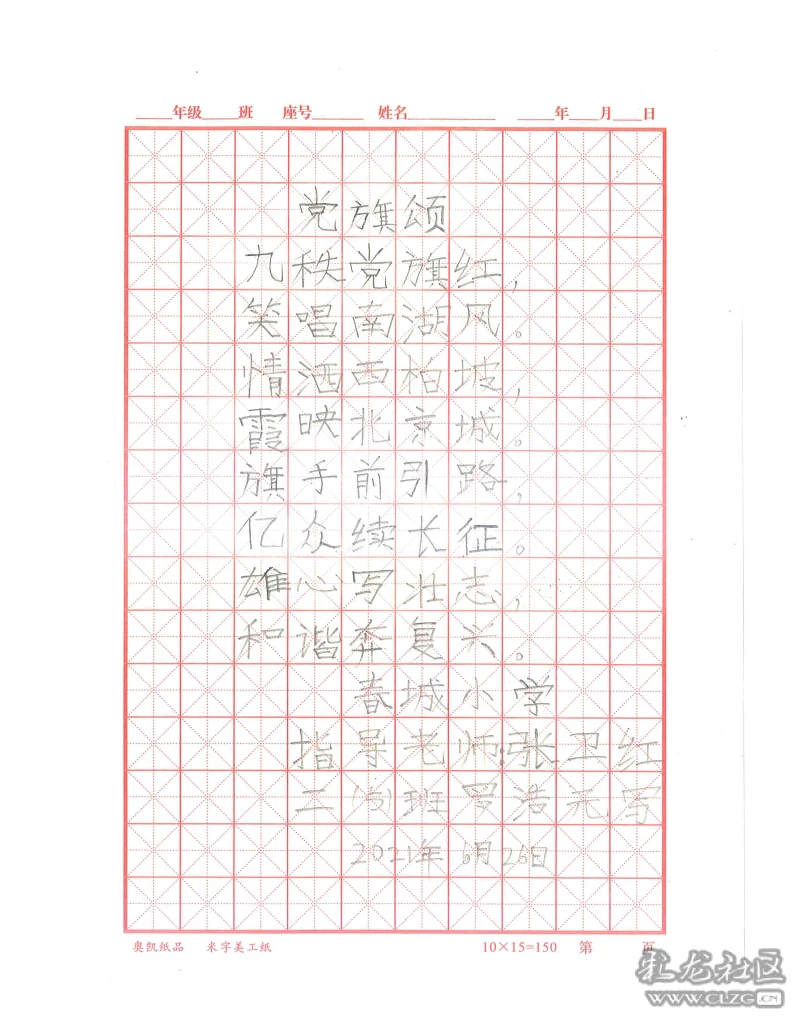 ____年级____班 座号______ 姓名__________ ____年___月___日
党旗颂
九秩党旗红，
笑唱南湖风。
情洒西柏坡，
霞映北京城。
旗手前引路，
亿众续长征。
雄心写壮志，
和谐奔复兴。
春城小学
指导老师:张卫红
二(5)班罗浩元写
2021年6月26日
奥凯纸品 米字美工纸 10×15=150 第 页
乳龙社区
www.CLZG.CN